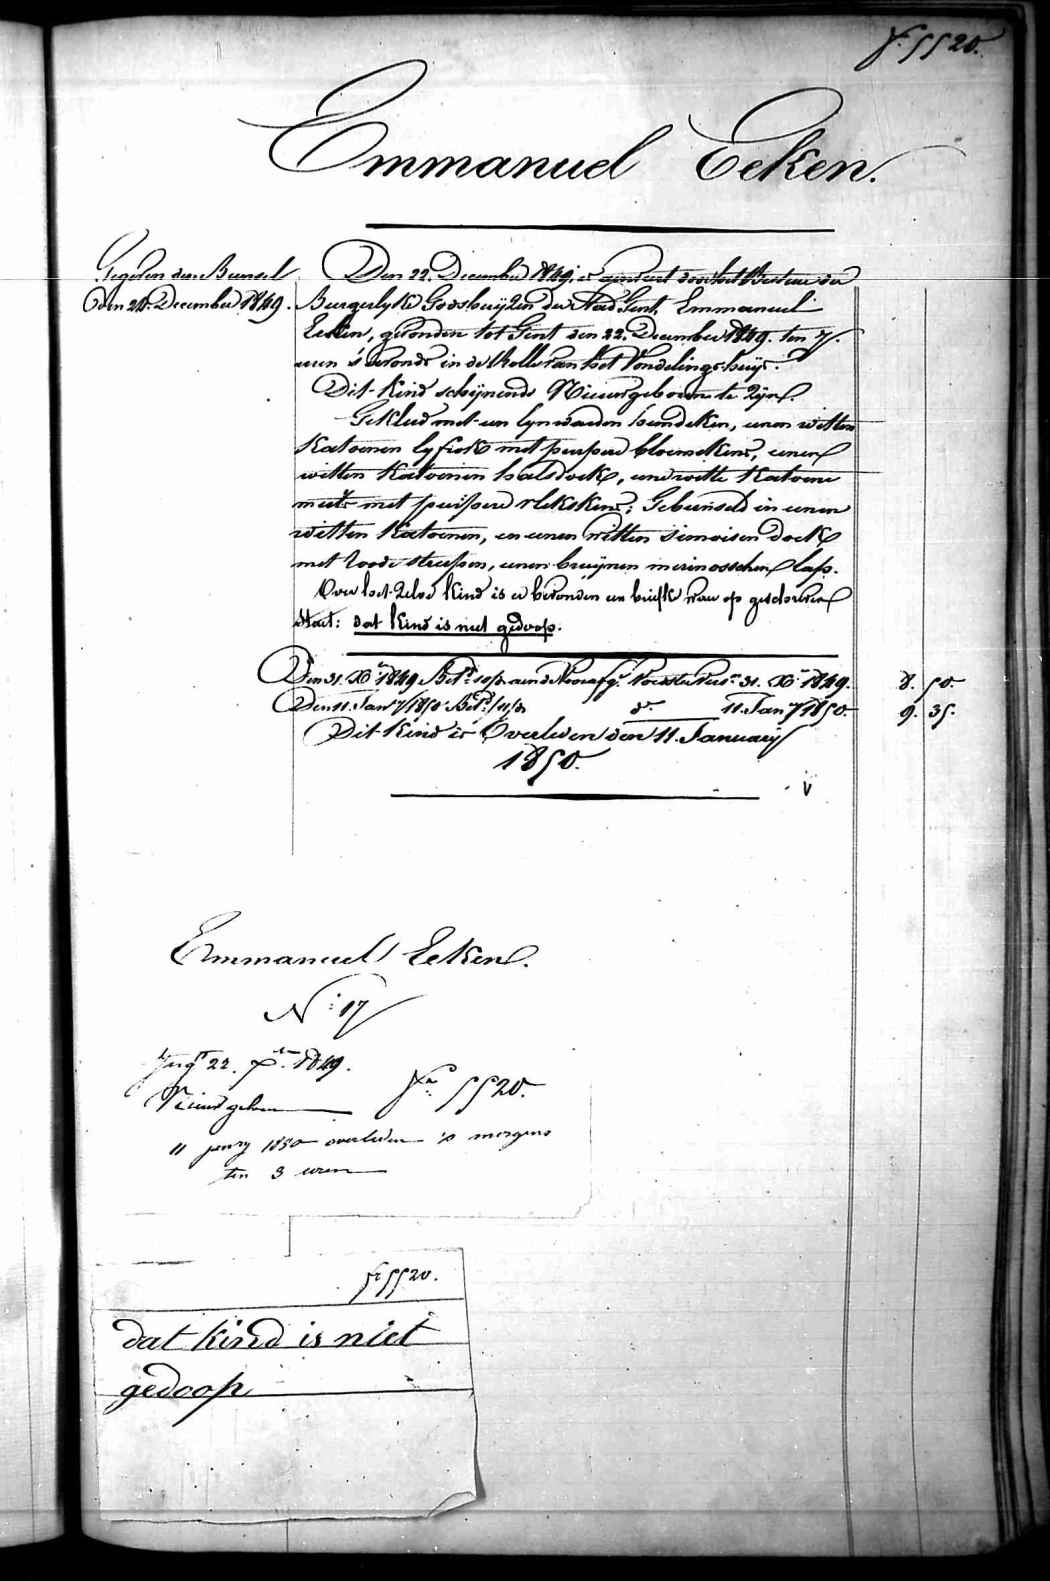 f. 5520.
Emmanuel Eeken.
Gegeven den Bunsel
den 24. December 1849.
Den 22. December 1849. is gevoert door het Bestuur der
Burgerlyke Godshuyzen der Stad Gent, Emmanuel
Eeken, gevonden tot Gent den 22. December 1849. ten 7
uren 's avonds in de Rolle van het Vondelingshuys.
Dit kind schijnende Nieuwgeboren te zijn.
Gekleed met een lynwaeden hemdeken, eenen witten
katoenen lyfrok met purpere bloemekens, eenen
witten katoenen halsdoek, eene witte katoene
muts met purpere vlekskens; Gebunseld in eenen
witten katoenen, en eenen witten simoisen doek
met roode streepen, eenen bruynen merinosschen lap.
Over het zelve kind is er bevonden een briefke waer op geschreven
staet: dat kind is niet gedoop.
Den 31. Xb. 1849 Bet. aen de Voedster 31. Xb. 1849. 8. 50.
Den 11. Jany 1850 Bet. do. 11. Jany 1850. 9. 35.
Dit kind is Overleden den 11. January
1850.
Emmanuel Eeken.
N: 17
22. Xbr. 1849.
Nieuwgeboren fo. 5520.
11 january 1850 overleden 's morgens
ten 3 uren
fo 5520.
dat kind is niet
gedoop